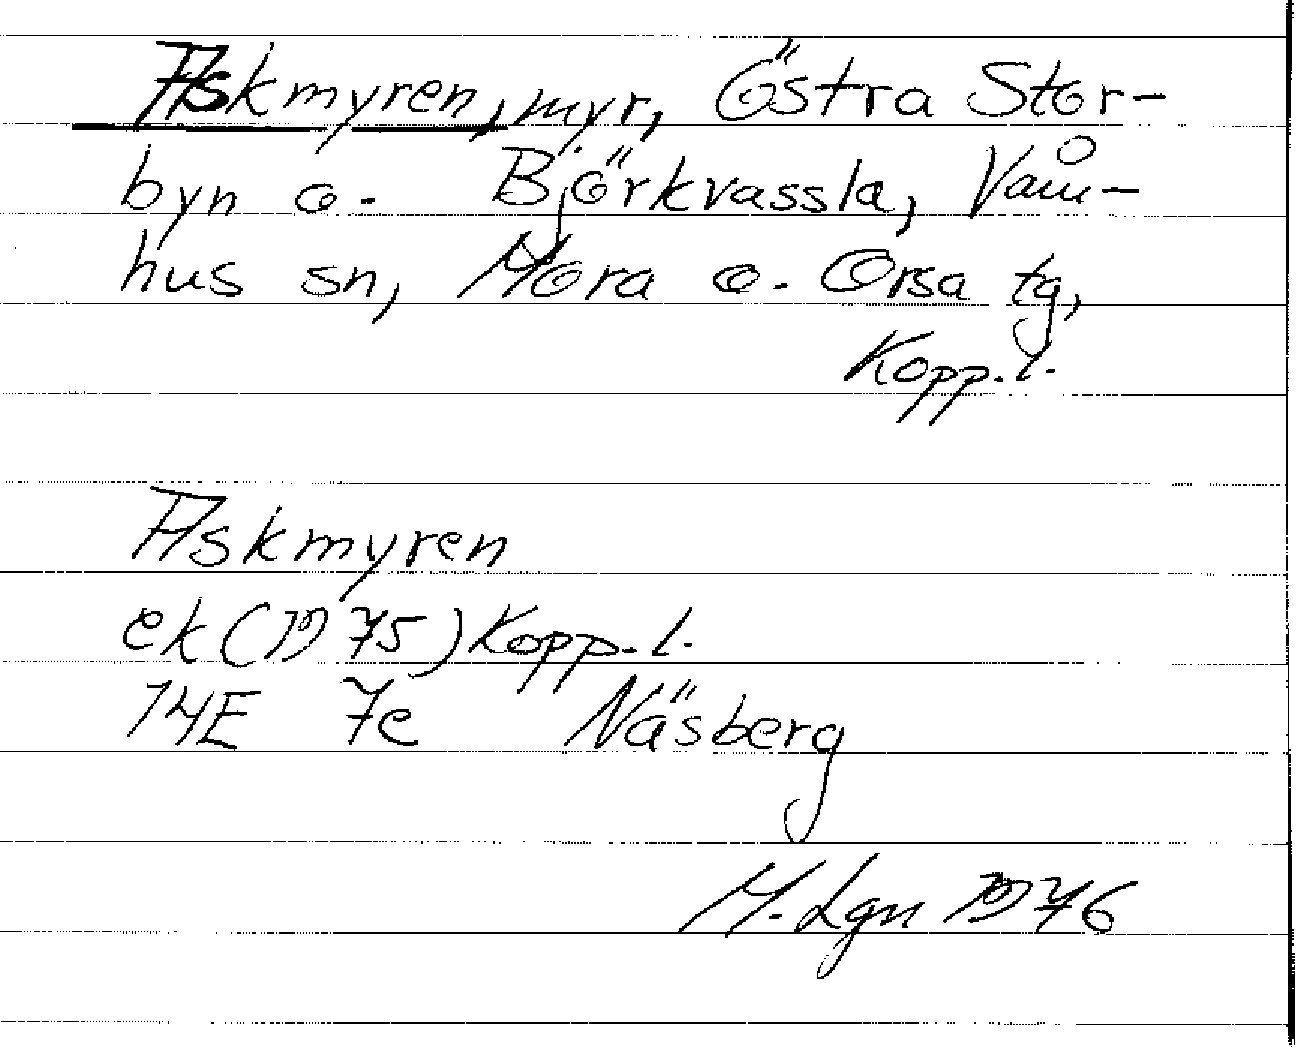 Askmyren, myr, Östra Stor-
byn o. Björkvassla, Våm-
hus sn, Mora o. Orsa tg,
Kopp. l.
Askmyren
ek (1975) Kopp. l.
14E 7e Näsberg
M. Lgn 1976